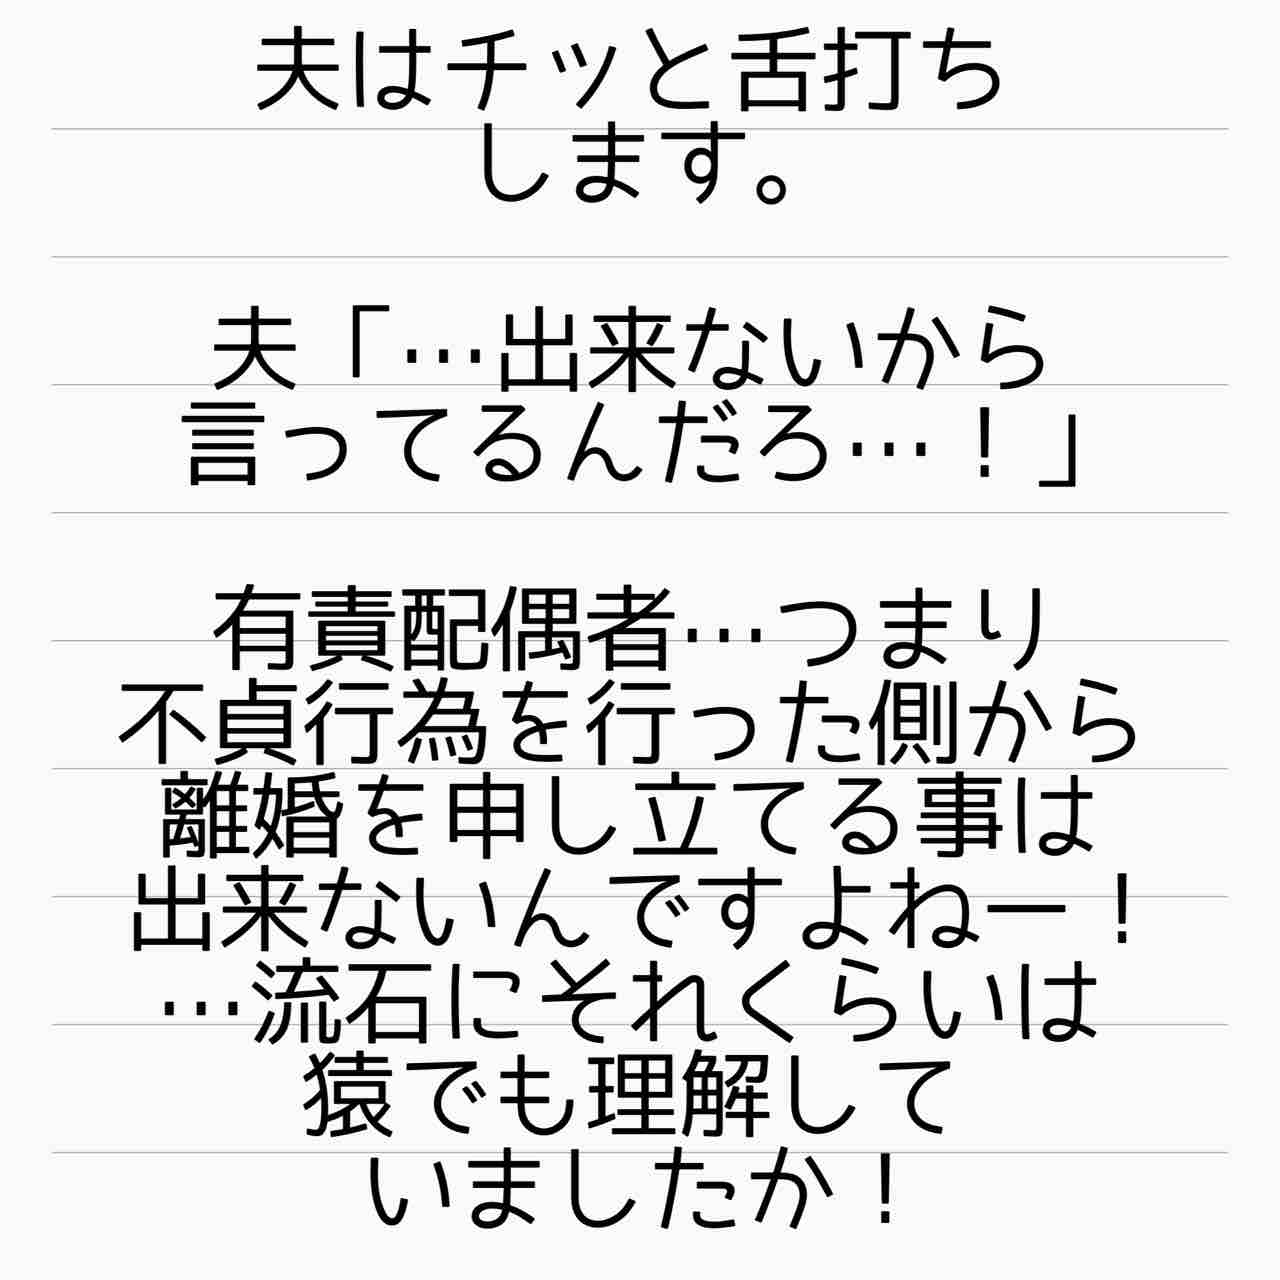 夫はチッと舌打ち
します。
夫「…出来ないから
言ってるんだろ…！」
有責配偶者…つまり
不貞行為を行った側から
離婚を申し立てる事は
出来ないんですよねー！
…流石にそれくらいは
猿でも理解して
いましたか！